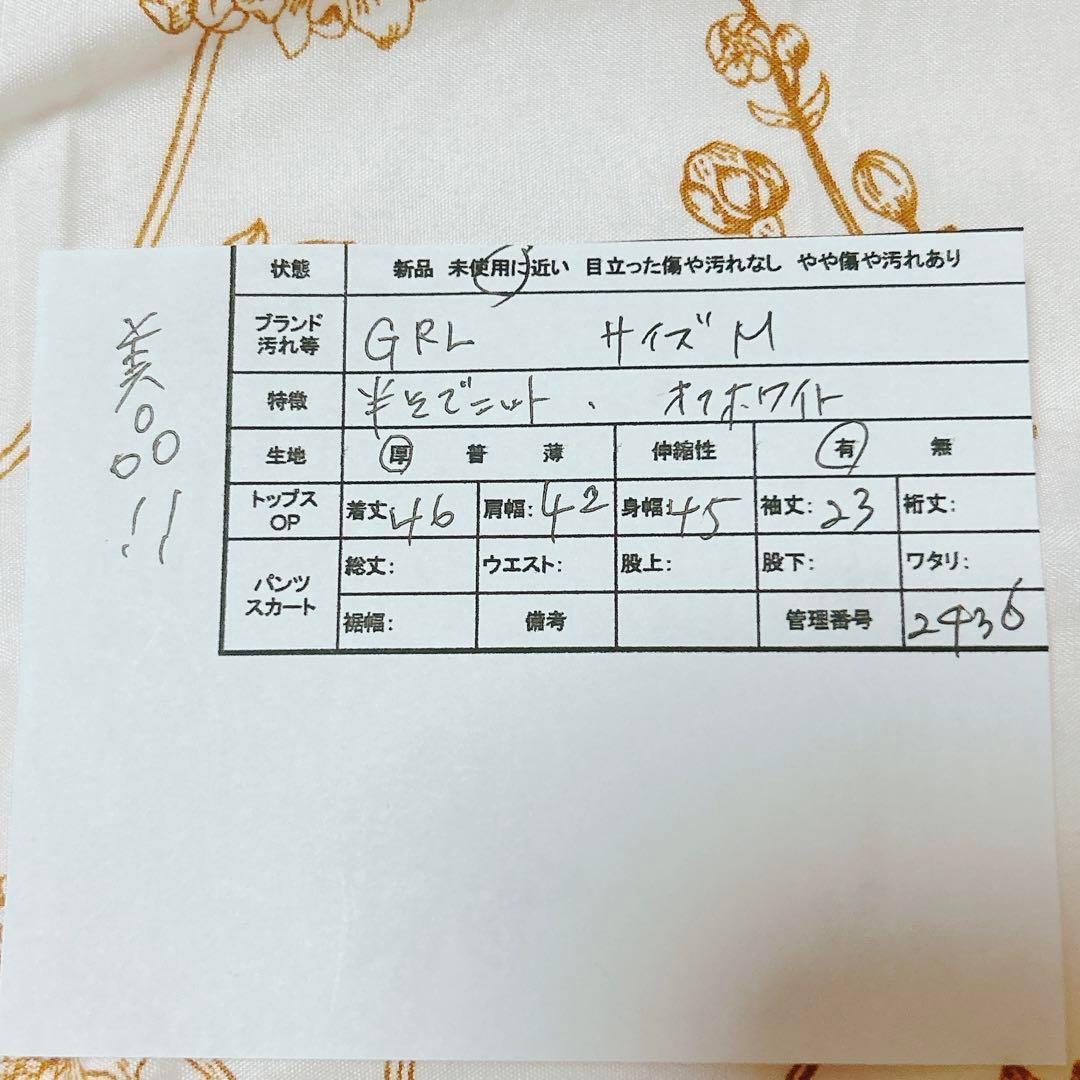 状態 新品 未使用に近い 目立った傷や汚れなし やや傷や汚れあり
ブランド 汚れ等 GRL サイズM
特徴 半そでニット、 オフホワイト
生地 厚 普 薄 伸縮性 有 無
トップス OP 着丈:46 肩幅:42 身幅:45 袖丈:23 裄丈:
パンツ スカート 総丈: ウエスト: 股上: 股下: ワタリ:
裾幅: 備考 管理番号 2436
美